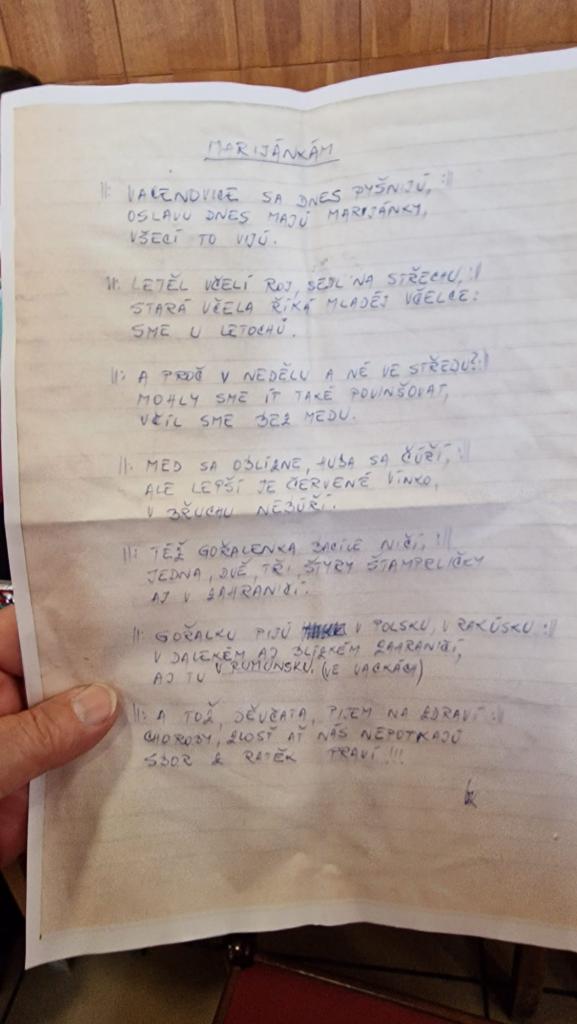 MARIJÁNKÁM
‖: VACENOVICE SA DNES PYŠNIJÚ, :‖
OSLAVU DNES MAJÚ MARIJÁNKY,
VŠECÍ TO VIJÚ.
‖: LETĚL VČELÍ ROJ, SEDL NA STŘECHU, :‖
STARÁ VČELA ŘÍKÁ MLADÉJ VČELCE:
SME U LETOCHŮ.
‖: A PROČ V NEDĚLU A NÉ VE STŘEDU? :‖
MOHLY SME ÍT TAKÉ POVINŠOVAT,
VČIL SME BEZ MEDU.
‖: MED SA OBLÍZNE, HUBA SA ČÚŘÍ, :‖
ALE LEPŠÍ JE ČERVENÉ VÍNKO,
V BŘUCHU NEBÚŘÍ.
‖: TÉŽ GOŘALENKA BACILE NIČÍ, :‖
JEDNA, DVĚ, TŘI, ŠTYRY ŠTAMPRLIČKY
AJ V ZAHRANIČÍ.
‖: GOŘALKU PIJÚ V POLSKU, V RAKÚSKU :‖
V DALEKÉM AJ BLÍZKÉM ZAHRANIČÍ,
AJ TU V RUMUNSKU. (VE VACKÁCH)
‖: A TOŽ, DĚVČATA, PIJEM NA ZDRAVÍ :‖
CHOROBY, ZLOSŤ AŤ NÁS NEPOTKAJÚ
SBOR Z RATĚK PRAVÍ!!!